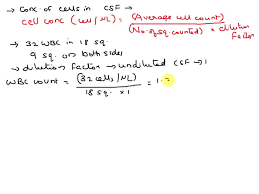 → Conc. of cells in CSF →
cell conc (cells/µL) = (Average cell count)
(No. of sq. counted) × dilution Factor
→ 32 WBC in 18 sq.
9 sq. on both sides
→ dilution factor → undiluted CSF → 1
WBC count = (32 cells/µL) = 1.7
18 sq. × 1